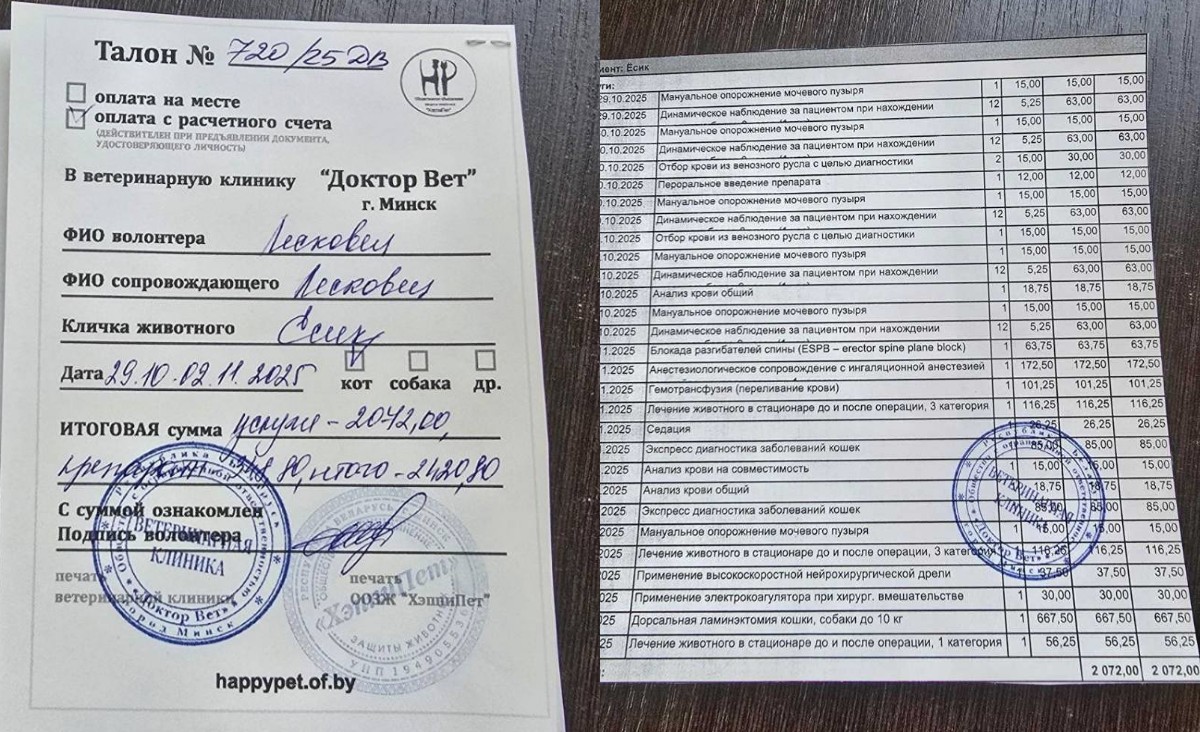 Талон № 720/25 ДВ
НР
оплата на месте
оплата с расчетного счета
(ДЕЙСТВИТЕЛЕН ПРИ ПРЕДЪЯВЛЕНИИ ДОКУМЕНТА,
УДОСТОВЕРЯЮЩЕГО ЛИЧНОСТЬ)
В ветеринарную клинику "Доктор Вет"
г. Минск
ФИО волонтера Лесковец
ФИО сопровождающего Лесковец
Кличка животного Есик
Дата 29.10.-02.11.2025 кот собака др.
ИТОГОВАЯ сумма услуги - 2072,00,
препараты 348,80, итого - 2420,80
С суммой ознакомлен
Подпись волонтера
печать
ветеринарной клиники
печать
ООЗЖ "ХэппиПет"
ВЕТЕРИНАРНАЯ
КЛИНИКА
«Доктор Вет»
город Минск
«ХэппиПет»
ЗАЩИТЫ ЖИВОТНЫХ
happypet.of.by
иент: Есик
ги:
29.10.2025 Мануальное опорожнение мочевого пузыря 1 15,00 15,00 15,00
29.10.2025 Динамическое наблюдение за пациентом при нахождении 12 5,25 63,00 63,00
0.10.2025 Мануальное опорожнение мочевого пузыря 1 15,00 15,00 15,00
0.10.2025 Динамическое наблюдение за пациентом при нахождении 12 5,25 63,00 63,00
0.10.2025 Отбор крови из венозного русла с целью диагностики 2 15,00 30,00 30,00
0.10.2025 Пероральное введение препарата 1 12,00 12,00 12,00
.10.2025 Мануальное опорожнение мочевого пузыря 1 15,00 15,00 15,00
.10.2025 Динамическое наблюдение за пациентом при нахождении 12 5,25 63,00 63,00
.10.2025 Отбор крови из венозного русла с целью диагностики 1 15,00 15,00 15,00
.10.2025 Мануальное опорожнение мочевого пузыря 1 15,00 15,00 15,00
.10.2025 Динамическое наблюдение за пациентом при нахождении 12 5,25 63,00 63,00
.10.2025 Анализ крови общий 1 18,75 18,75 18,75
10.2025 Мануальное опорожнение мочевого пузыря 1 15,00 15,00 15,00
10.2025 Динамическое наблюдение за пациентом при нахождении 12 5,25 63,00 63,00
1.2025 Блокада разгибателей спины (ESPB – erector spine plane block) 1 63,75 63,75 63,75
1.2025 Анестезиологическое сопровождение с ингаляционной анестезией 1 172,50 172,50 172,50
1.2025 Гемотрансфузия (переливание крови) 1 101,25 101,25 101,25
1.2025 Лечение животного в стационаре до и после операции, 3 категория 1 116,25 116,25 116,25
1.2025 Седация 1 26,25 26,25 26,25
.2025 Экспресс диагностика заболеваний кошек 1 85,00 85,00 85,00
.2025 Анализ крови на совместимость 1 15,00 15,00 15,00
.2025 Анализ крови общий 1 18,75 18,75 18,75
.2025 Экспресс диагностика заболеваний кошек 1 85,00 85,00 85,00
2025 Мануальное опорожнение мочевого пузыря 1 15,00 15,00 15,00
2025 Лечение животного в стационаре до и после операции, 3 категория 1 116,25 116,25 116,25
2025 Применение высокоскоростной нейрохирургической дрели 1 37,50 37,50 37,50
2025 Применение электрокоагулятора при хирург. вмешательстве 1 30,00 30,00 30,00
025 Дорсальная ламинэктомия кошки, собаки до 10 кг 1 667,50 667,50 667,50
025 Лечение животного в стационаре до и после операции, 1 категория 1 56,25 56,25 56,25
: 2 072,00 2 072,00
ВЕТЕРИНАРНАЯ
КЛИНИКА
«Доктор Вет»